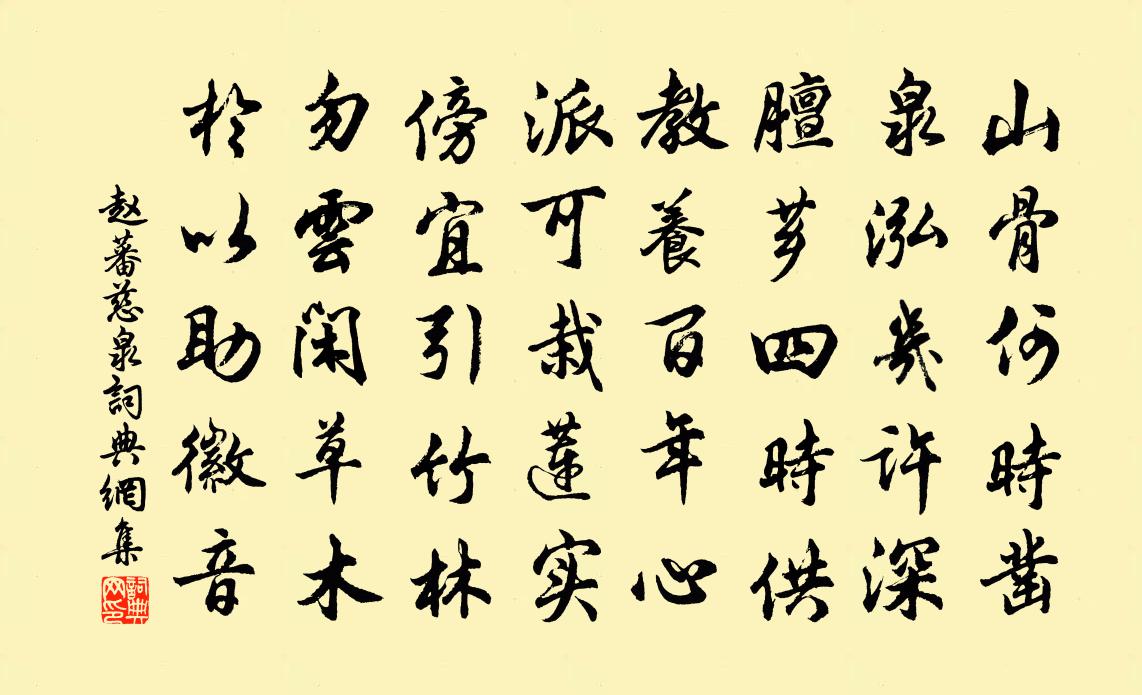 山骨何時鑿
泉泓幾許深
膻芗四時供
教養百年心
派可栽蓮实
傍宜引竹林
勿雲閑草木
於以助徽音
赵蕃慈泉詞典網集
詞典网印